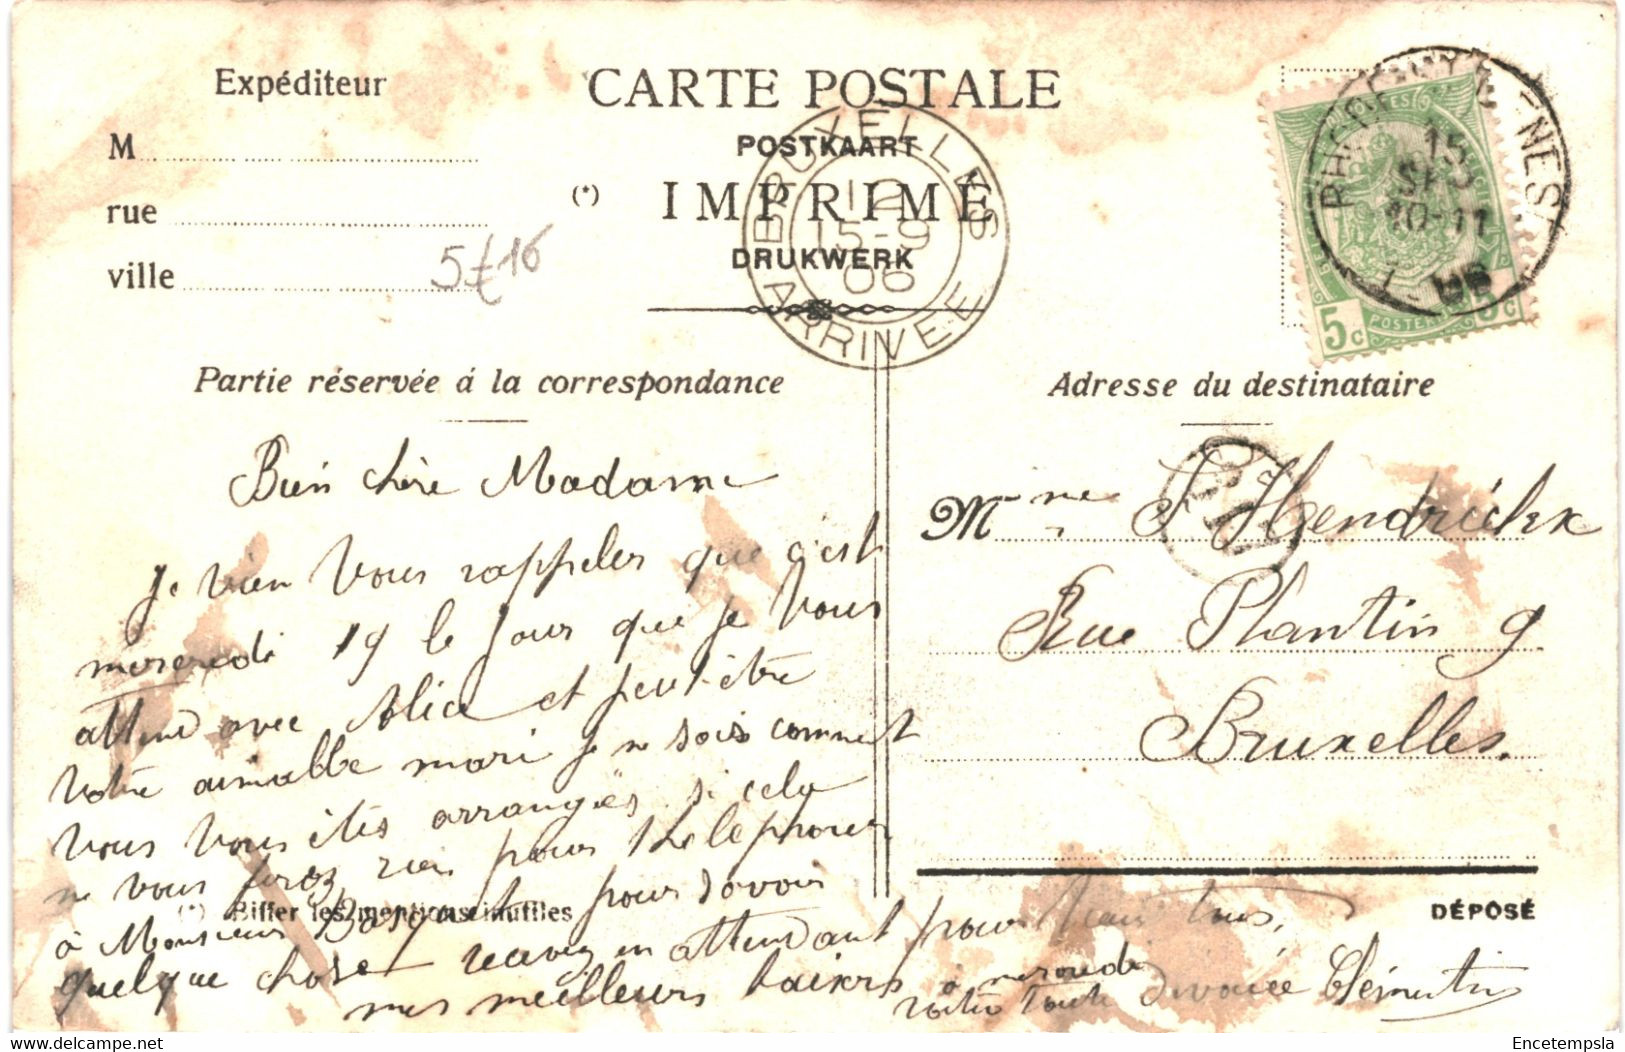 Expéditeur
M
rue
ville
5€ 16
CARTE POSTALE
POSTKAART
(*) IMPRIMÉ
DRUKWERK
BRUXELLES
12
15-9
06
ARRIVEE
15
SEPT
10-11
06
5c POSTERIJEN 5c
Partie réservée á la correspondance
Bien chère Madame
Je vien vous rappeler que c'est
mercredi 19 le jour que je vous
attend avec Alice et peut-être
votre aimable mari je ne sais comment
vous vous êtes arrangées si cela
ne vous ferez rien pour thelephoner
à Monsieur pour savoir
quelque chose recevez en attendant pour
mes meilleurs baisers
à mercredi
votre toute dévouée Clémentine
(*) Biffer les mentions inutiles
Adresse du destinataire
Mme Hendrickx
Rue Plantin 9
Bruxelles
DÉPOSÉ
www.delcampe.net
Encetempsla